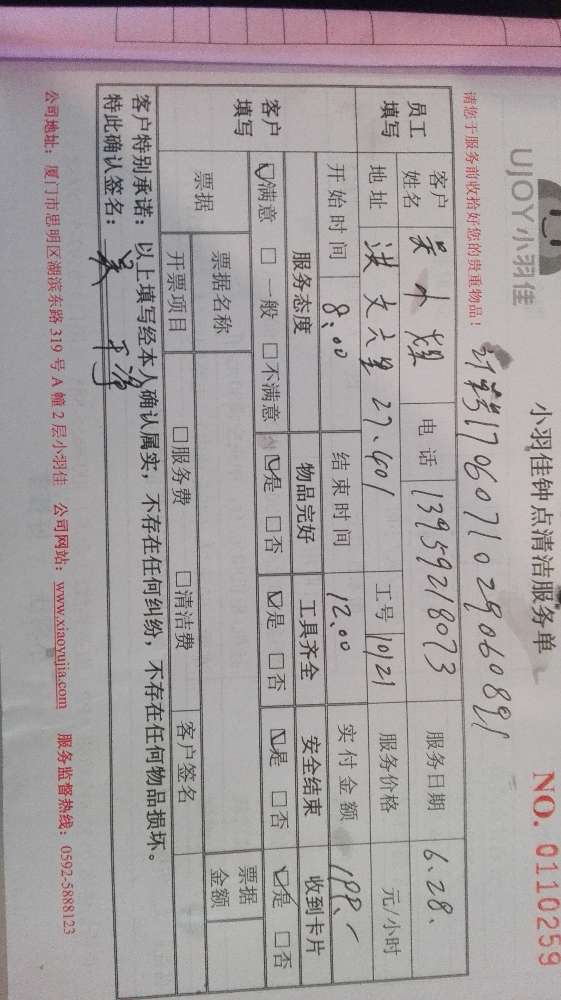 UJOY小羽佳
小羽佳钟点清洁服务单
NO. 0110259
请您于服务前收拾好您的贵重物品!
计彩1706071029060891
员工填写
客户姓名 吴小 电话 13959218073 服务日期 6.28.
地址 洪文六里27.401 工号 10121 服务价格 元/小时
开始时间 8:00 结束时间 12.00 实付金额 199.-
客户填写
服务态度 物品完好 工具齐全 安全结束 收到卡片
☑满意 □一般 □不满意 ☑是 □否 ☑是 □否 ☑是 □否 ☑是 □否
票据 票据名称 票据金额
开票项目 □服务费 □清洁费 客户签名
客户特别承诺:以上填写经本人确认属实,不存在任何纠纷,不存在任何物品损坏。
特此确认签名:吴
公司地址:厦门市思明区湖滨东路319号A幢2层小羽佳 公司网站:www.xiaoyujia.com 服务监督热线:0592-5888123